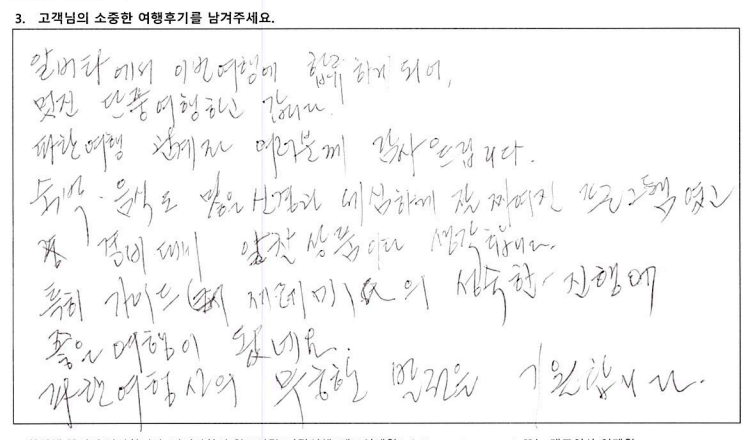 3. 고객님의 소중한 여행후기를 남겨주세요.
알버타에서 이번여행에 합류하게 되어,
멋진 단풍여행하고 갑니다.
파란여행 관계자 여러분께 감사드립니다.
숙박·음식도 많은신경과 세심하게 잘 짜여진 프로그램였고
경비 대비 알찬 상품이다 생각합니다.
특히 가이드 의 성숙한 진행에
좋은 여행이 됐네요.
파란여행사의 무궁한 발전을 기원합니다.